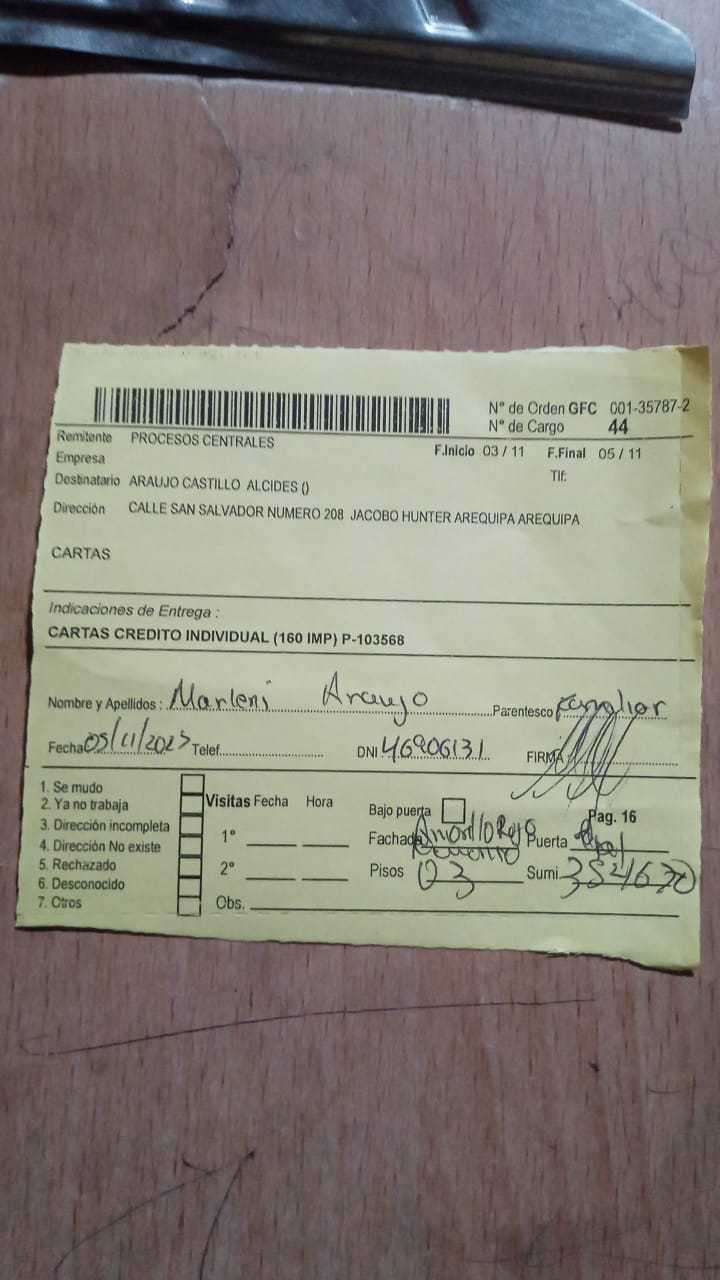 N° de Orden GFC 001-35787-2
N° de Cargo 44
Remitente PROCESOS CENTRALES
F.Inicio 03 / 11 F.Final 05 / 11
Empresa
Tlf:
Destinatario ARAUJO CASTILLO ALCIDES ()
Dirección CALLE SAN SALVADOR NUMERO 208 JACOBO HUNTER AREQUIPA AREQUIPA
CARTAS
Indicaciones de Entrega :
CARTAS CREDITO INDIVIDUAL (160 IMP) P-103568
Nombre y Apellidos : Marleni Araujo Parentesco
Fecha 05/11/2023 Telef. DNI 46906131 FIRMA
1. Se mudo
2. Ya no trabaja
3. Dirección incompleta
4. Dirección No existe
5. Rechazado
6. Desconocido
7. Otros
Visitas Fecha Hora
1°
2°
Obs.
Bajo puerta
Pag. 16
Fachada Amarillo Rojo Puerta
Pisos 03 Sumi